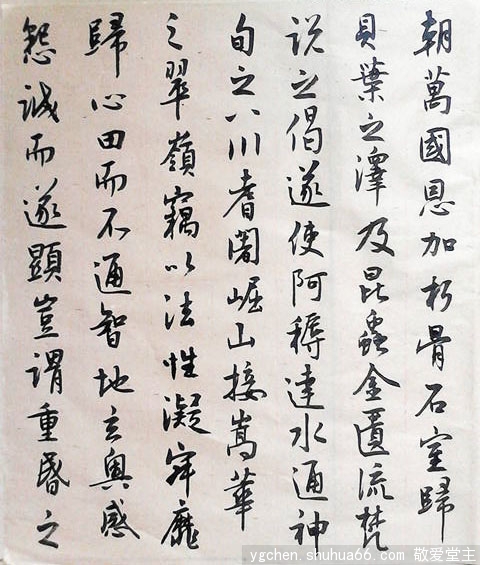 朝萬國恩加朽骨石室歸
貝葉之澤及昆蟲金匱流梵
説之偈遂使阿耨達水通神
甸之八川耆闍崛山接嵩華
之翠嶺竊以法性凝寂靡
歸心田而不通智地玄奧感
懇誠而遂顯豈謂重昏之
ygchen.shuhua66.com 敬爱堂主